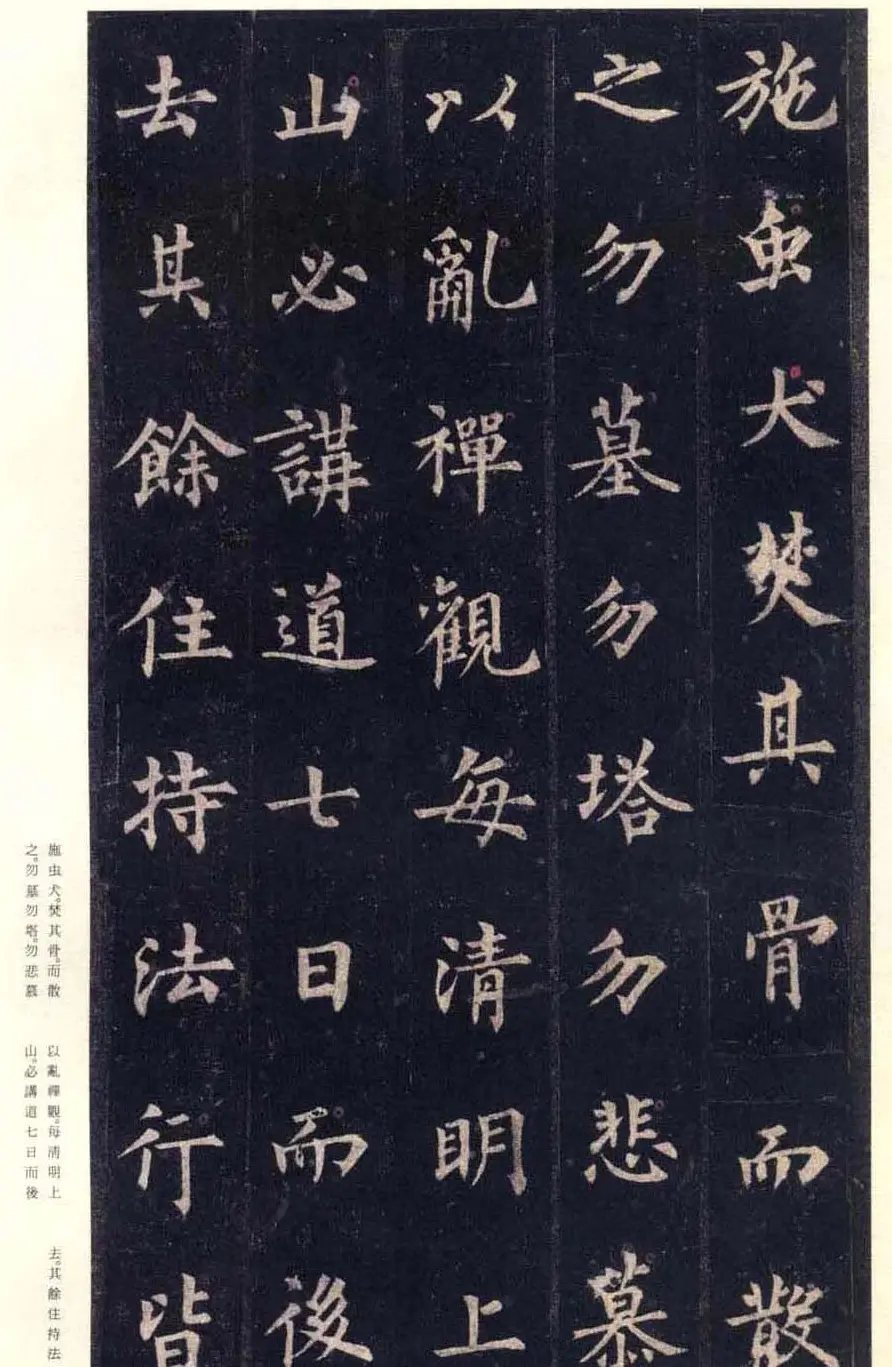 施虫犬焚其骨而散
之勿墓勿塔勿悲慕
以亂禪觀每清明上
山必講道七日而後
去其餘住持法行皆
施虫犬。焚其骨。而散
之。勿墓勿塔。勿悲慕
以亂禪觀。每清明上
山。必講道七日而後
去。其餘住持法